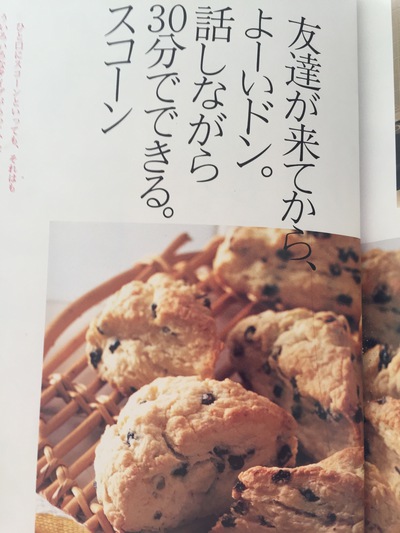 友達が来てから、
よーいドン。
話しながら
30分でできる。
スコーン
ひと口にスコーンといっても、それはも